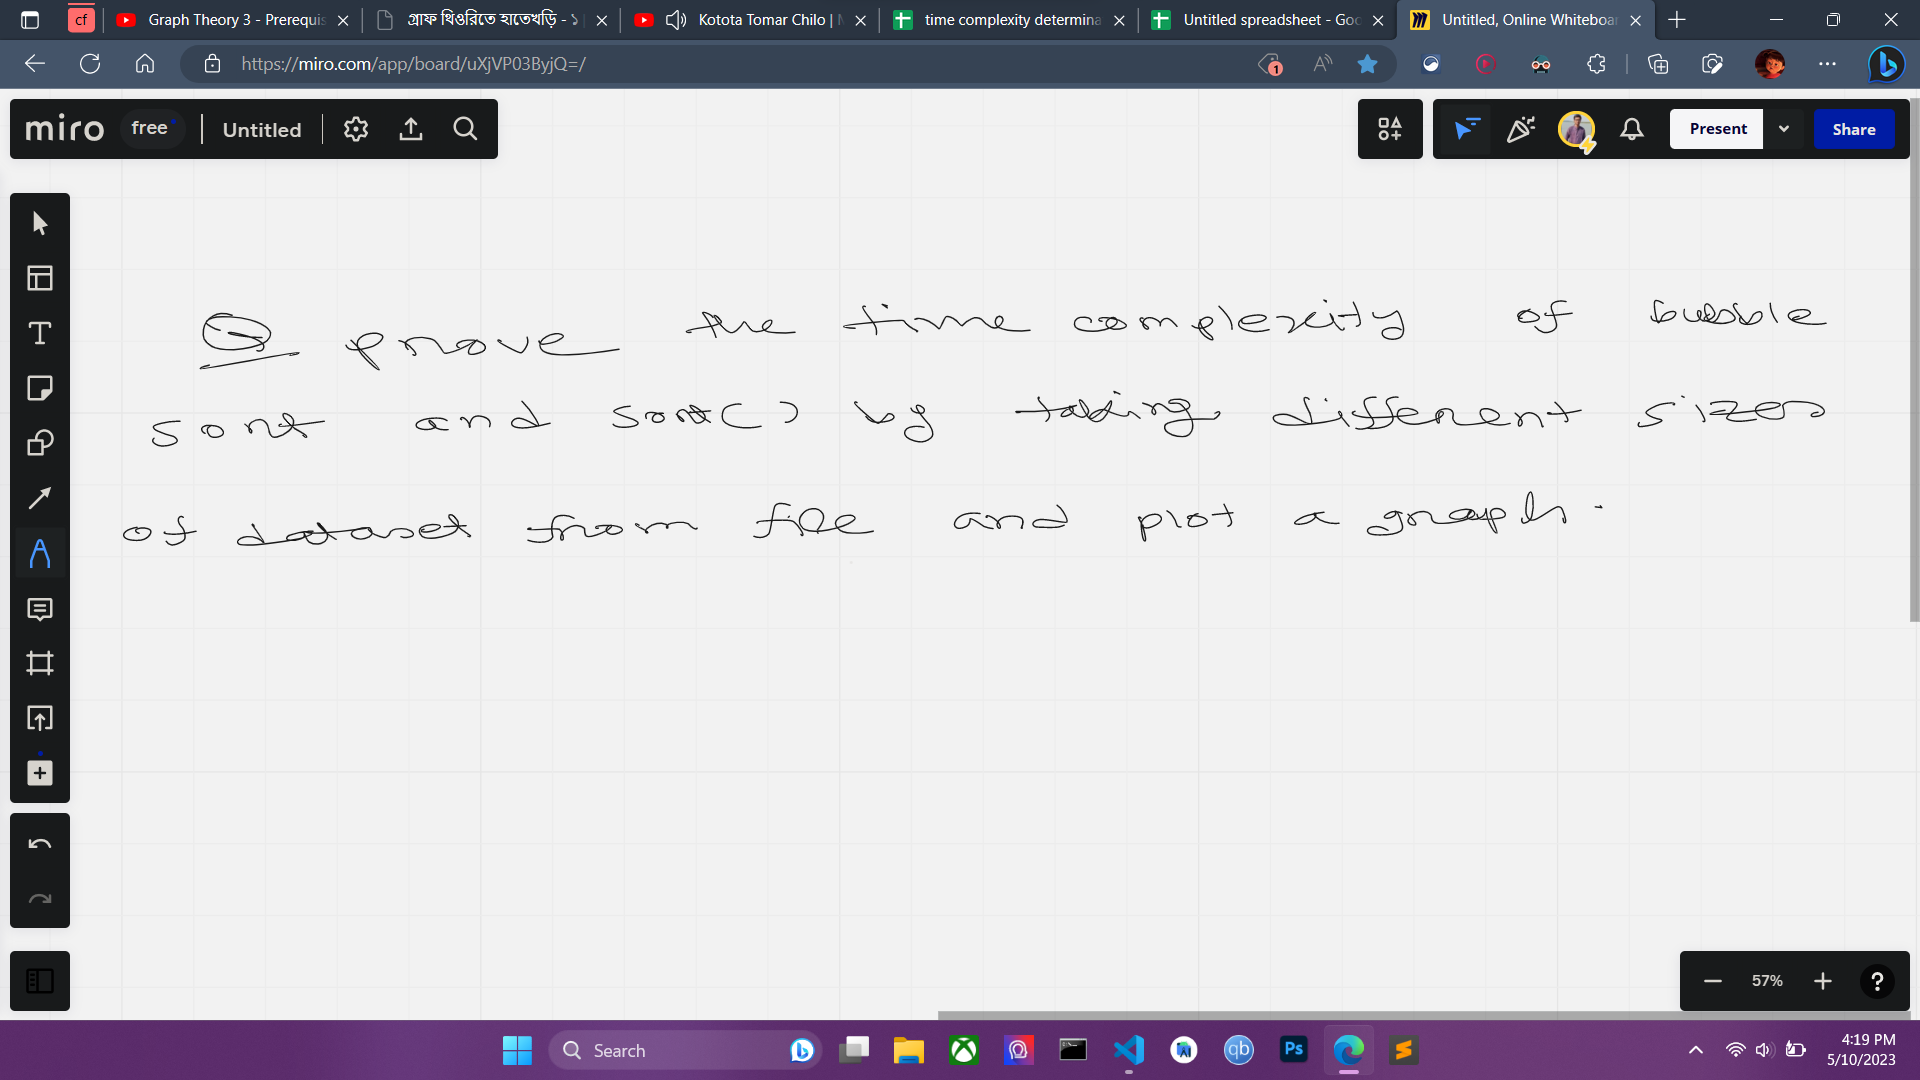 cf
Graph Theory 3 - Prerequis
গ্রাফ থিওরিতে হাতেখড়ি - ১
Kotota Tomar Chilo |
time complexity determina
Untitled spreadsheet - Goo
Untitled, Online Whiteboar
https://miro.com/app/board/uXjVP03ByjQ=/
1
miro free Untitled
Present
Share
prove the time complexity of bubble
sort and sort() by taking different sizes
of dataset from file and plot a graph.
57%
?
Search
qb
Ps
4:19 PM
5/10/2023